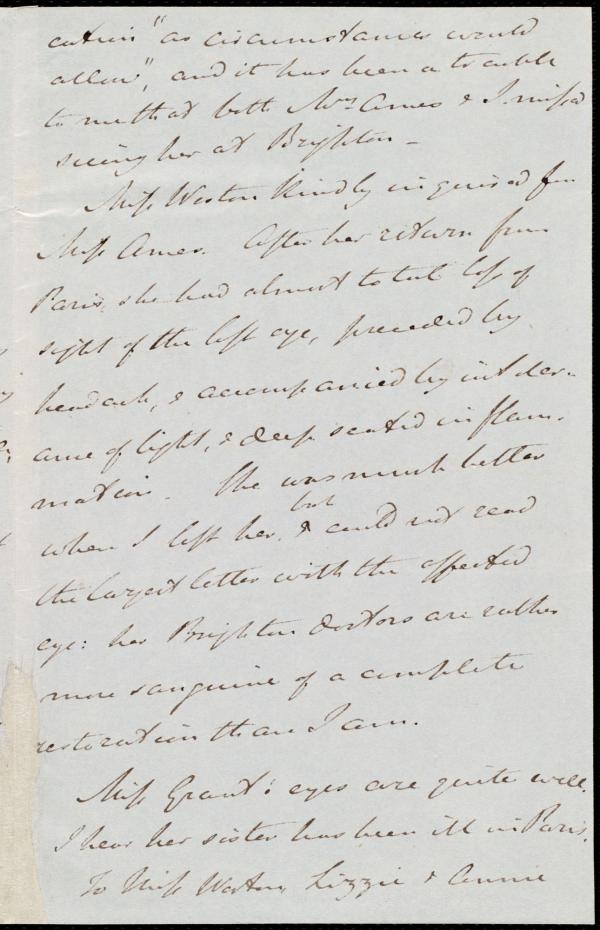 cation "as circumstances would
allow", and it has been a trouble
to me that both Mrs Ames & I miss'd
seeing her at Brighton -
Miss Weston kindly inquired for
Miss Ames. After her return from
Paris, she had almost total loss of
sight of the left eye, preceded by
headach, & accompanied by intoler-
ance of light, & deep seated inflam-
mation. She was much better
when I left her, but could not read
the largest letter with the affected
eye: her Brighton doctors are rather
more sanguine of a complete
restoration than I am.
Miss Grant's eyes are quite well.
I hear her sister has been ill in Paris.
To Miss Weston, Lizzie & Annie